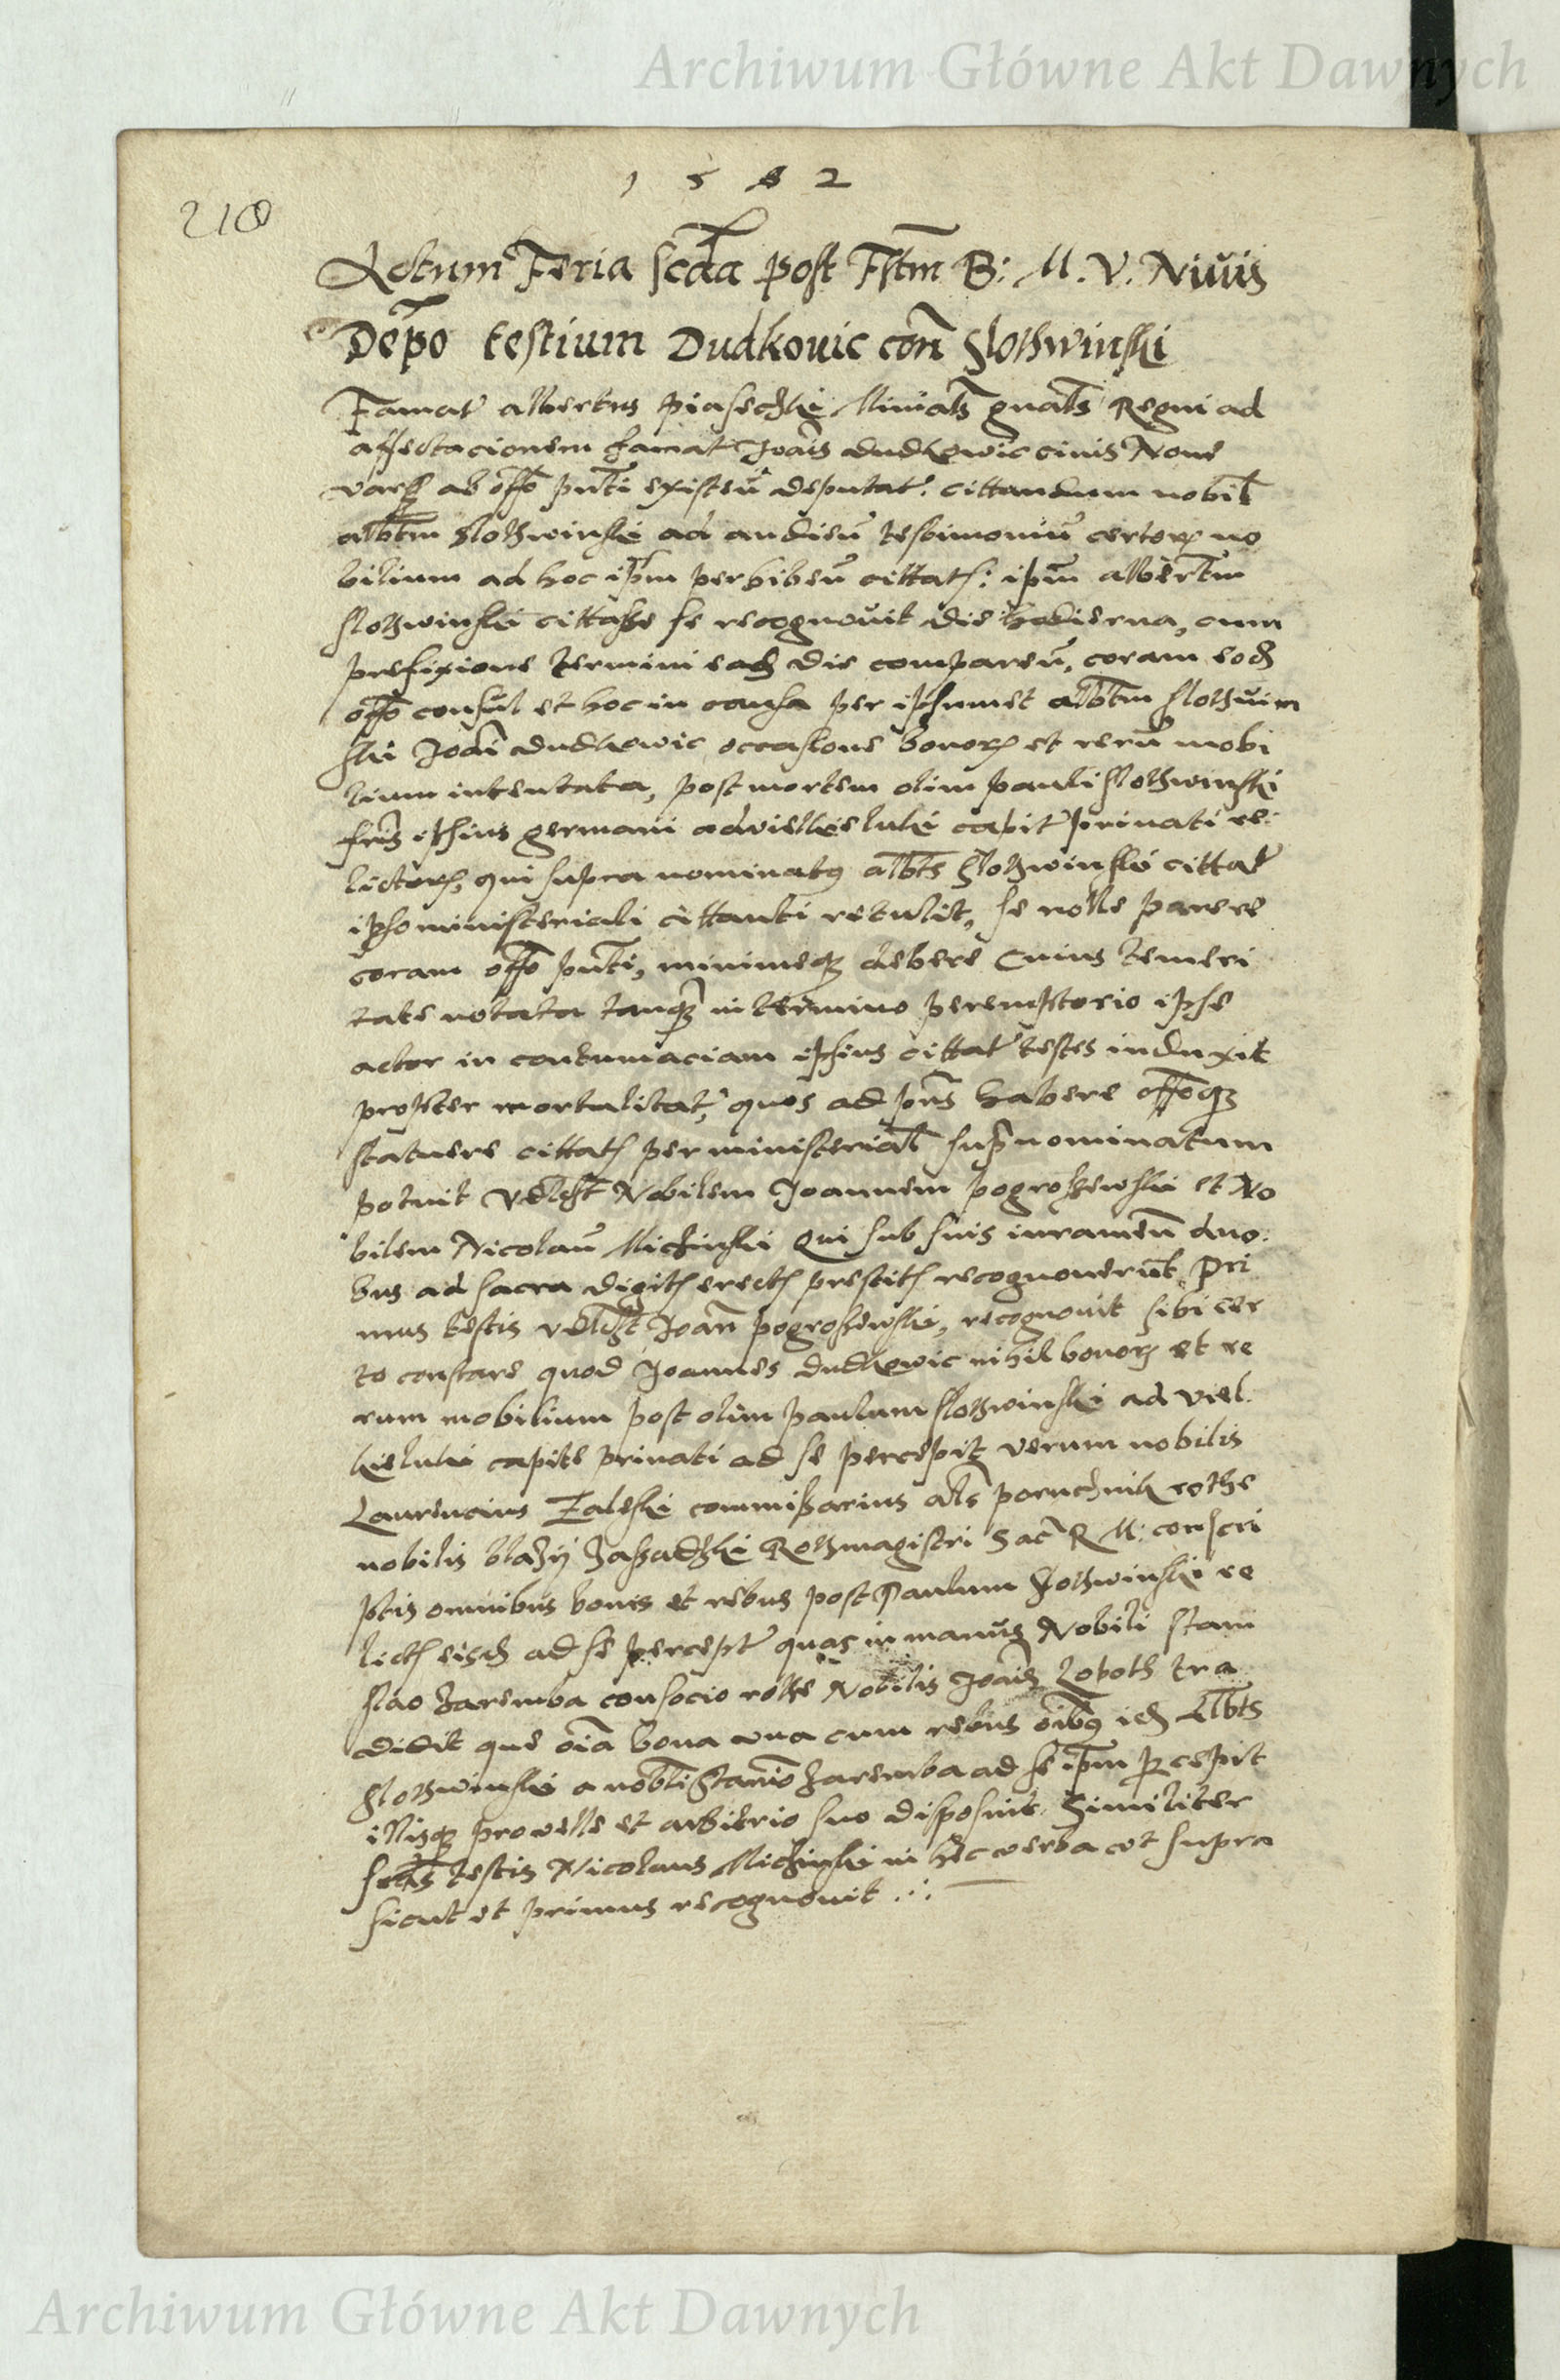 Archiwum Główne Akt Dawnych
1 5 8 2
218
Actum Feria scda post Fstm B: M. V. Nivis
Depo testium Dudkovic con Slothwinski
Famat albertus Piaseczki Minials gnals Regni ad
affectacionem famat Joais dudkowic civis Nove
vars ab offo pnti existen deputat. cittandum nobil
albtm Slothwinski ad audien testimoniu certor no
bilium ad hoc ipm perhiben cittat: ipm albertm
slothwinski cittasse se recognovit die hodierna, cum
prefixione termini ead die comparen, coram eod
offo consul et hoc in causa per ipsumet albtm slothvin
ski Joani dudkowic occasione bonor et reru mobi
lium intentata, post mortem olim pauli slothwinski
fris ipsius germani ad vielkie luki capit privati re:
lictor, qui supra nominatus albts Slothwinski cittat
ipso ministeriali cittanti retulit, se nolle parere
coram offo pnti, minimeq debere Cuius temeri
tate notata tanq in termino peremptorio ipse
actor in contumaciam ipsius cittat testes induxit
propter mortalitat, quos ad pns habere offoq
statuere cittat per ministerial supnominatum
potuit vdlzt Nobilem Joannem pogroszewski et No
bilem Nicolau Miczinski Qui sub suis iuramen duo:
bus ad sacra digit erect prestit recognoverunt Pri
mus testis vdlzt Joan pogroszewski, recognovit sibi cer
to constare quod Joannes dudkowic nihil bonor et re
rum mobilium post olim paulum slothwinski ad viel
kieluki capite privati ad se percepit verum nobilis
Laurencius Zaleski commissarius als poruchnik rothe
nobilis blazii Jassadzki Rothmagistri Sac R M: conscri
ptis omnibus bonis et rebus post Paulum Slothwinski re
lict eisd ad se percept quas in manus Nobili stani
slao zaremba consocio rothe Nobilis Joais Loboth tra
didit que oia bona una cum rebus oibus id Albts
Slothwinski a nobli Stanio zaremba ad se ipm percepit
illisq pro velle et arbitrio suo disposuit. Similiter
scds testis Nicolaus Miczinski in hec verba ut supra
sicut et primus recognovit .:
Archiwum Główne Akt Dawnych